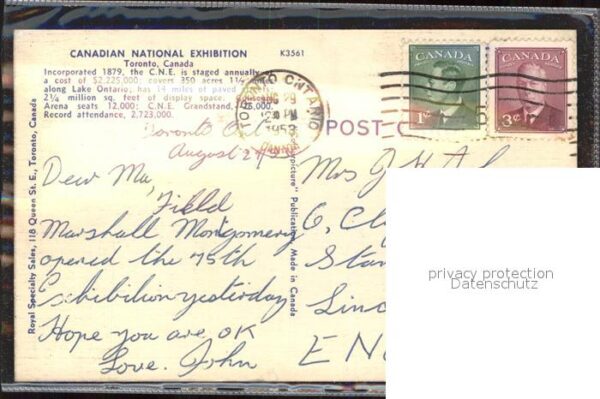 CANADIAN NATIONAL EXHIBITION K3561
Toronto, Canada
Incorporated 1879, the C.N.E. is staged annually
a cost of $2,225,000; covers 350 acres 1½
along Lake Ontario; has 14 miles of paved
2¼ million sq. feet of display space;
Arena seats 12,000; C.N.E. Grandstand,
Record attendance, 2,723,000.
TORONTO ONTARIO
29
PM
1953
CANADA
POSTES POSTAGE
1¢
CANADA
3¢
POST C
Toronto Ont
August 29
Dear Ma,
Field
Marshall Montgomery
opened the 75th
Exhibition yesterday
Hope you are OK
Love. John
Mrs J
6, Cl
Stam
Linc
EN
Royal Specialty Sales, 118 Queen St. E., Toronto, Canada
picture" Publication, Made in Canada
privacy protection
Datenschutz